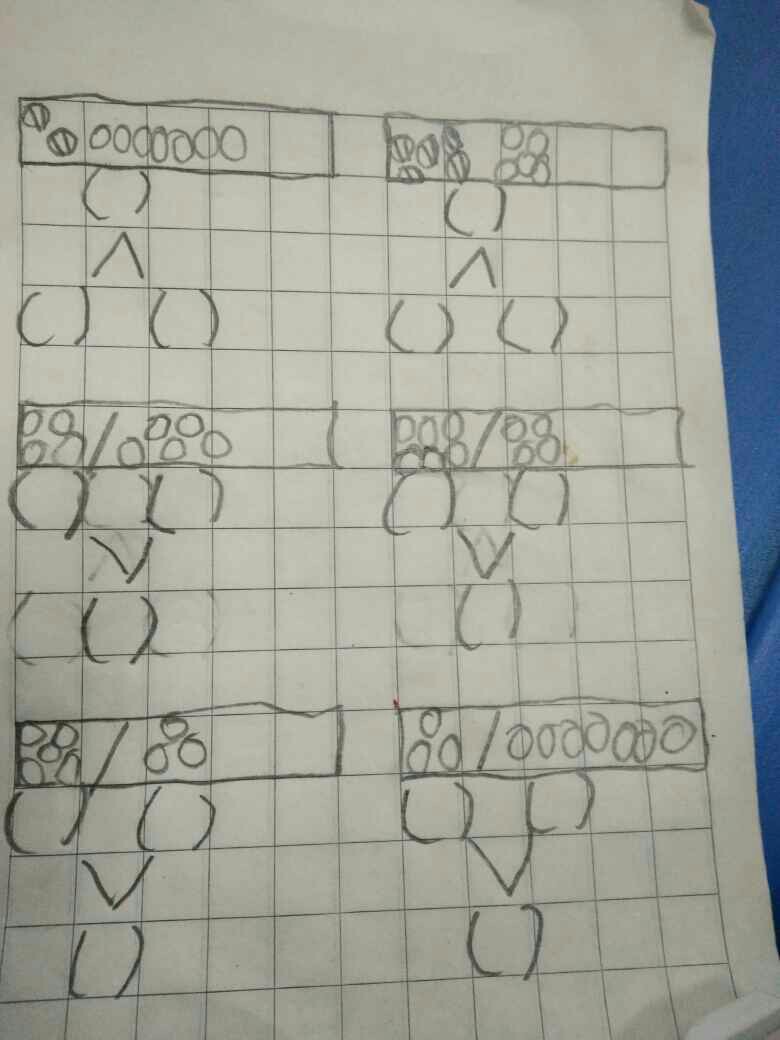 ( ) ( )
∧ ∧
( ) ( ) ( ) ( )
/ /
( ) ( ) ( ) ( )
∨ ∨
( ) ( )
/ /
( ) ( ) ( ) ( )
∨ ∨
( ) ( )